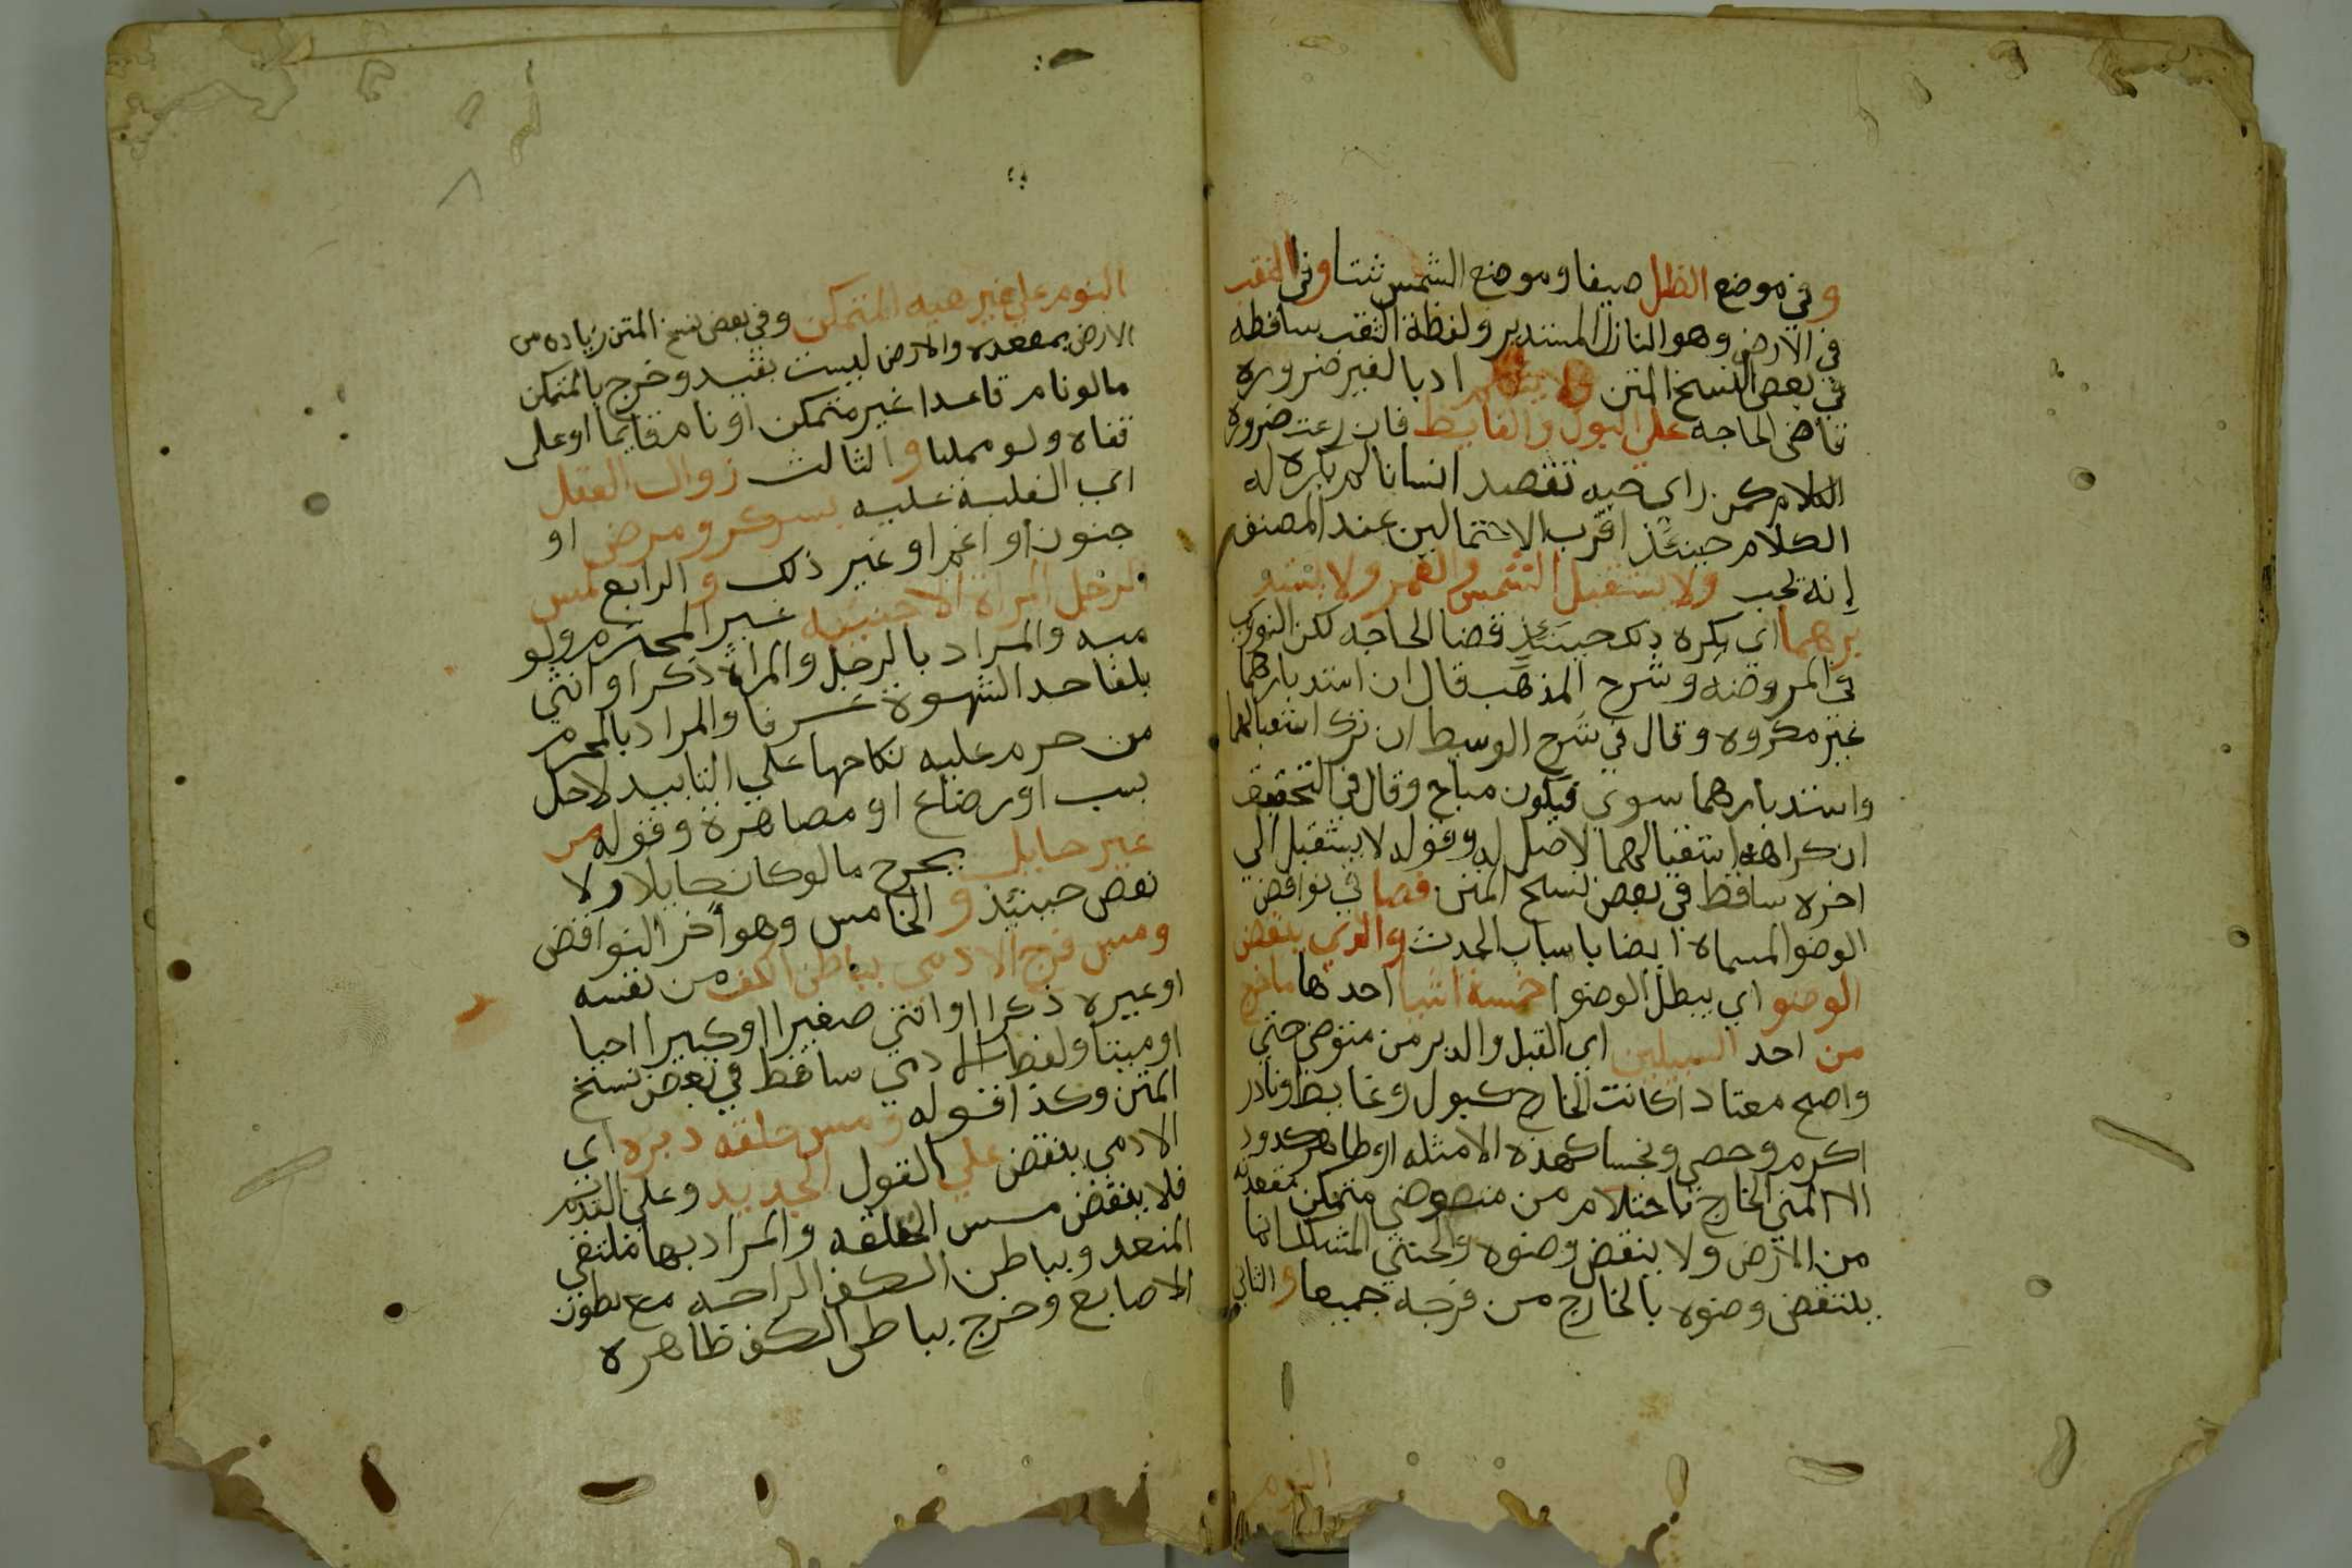 وفي موضع الظل صيفا وموضع الشمس شتا وفي الثقب
في الارض وهو النازل المستدير ولفظة الثقب ساقطه
في بعض النسخ المتن ولا يتكلم ادبا لغير ضروره
قاضي الحاجه علي البول والغايط فان دعت ضرورة
الكلام كمن راي حيه تقصد انسانا لم يكره له
الكلام حينئذ اقرب الاحتمالين عند المصنف
إنه تجب ولا يستقبل الشمس والقمر ولا يستد
برهما اي يكره ذلك حينئذ قضا الحاجه لكن النووي
في المروضه وشرح المذهب قال ان استدبارهما
غير مكروه وقال في شرح الوسيط ان ترك استقبالهما
واستدبارهما سوي فيكون مباح وقال في التحقيق
ان كراهة استقبالهما لا اصل له وقوله لا يستقبل الي
اخره ساقط في بعض نسخ المتن فصل في نواقض
الوضو المسماه ايضا باسباب الحدث والذي ينقض
الوضو اي يبطل الوضو خمسة اشيا احدها ماخرج
من احد السبيلين اي القبل والدبر من متوضي حي
واضح معتادا كانت الخارج كبول وغايط او نادر
اكرم وحصي ونجسا كهذه الامثله او طاهر كدود
الا المني الخارج باحتلام من متوضي متمكن مقعدته
من الارض ولا ينقض وضوه والخنثي المشكل انما
ينتقض وضوه بالخارج من فرجه جميعا والثاني
النوم
النوم علي غير هيه المتمكن وفي بعض نسخ المتن زياده من
الارض بمقعده والارض ليست بقيد وخرج بالمتمكن
مالو نام قاعدا غير متمكن او نام قايما او علي
قفاه ولو ممكنا والثالث زوال العقل
اي الغلبة عليه بسكر ومرض او
جنون او اغما او غير ذلك والرابع لمس
الرجل المراة الاجنبيه غير المحرم ولو
ميه والمراد بالرجل والمراة ذكر او انثي
بلغا حد الشهوة عرفا والمراد بالمحرم
من حرم عليه نكاحها علي التابيد لاجل
نسب او رضاع او مصاهرة وقوله من
غير حايل يخرج مالو كان حايلا ولا
نقض حينئذ والخامس وهو أخر النواقض
ومس فرج الادمي بباطن الكف من نفسه
او غيره ذكرا او انثي صغيرا او كبيرا حيا
او ميتا ولفظ الادمي ساقط في بعض نسخ
المتن وكذا قوله ومس حلقه دبره اي
الادمي ينقض علي القول الجديد وعلي القديم
فلا ينقض مس الحلقه والمراد بها ملتقي
المنعد وبباطن الكف الراحه مع بطون
الاصابع وخرج بباطن الكف ظاهره